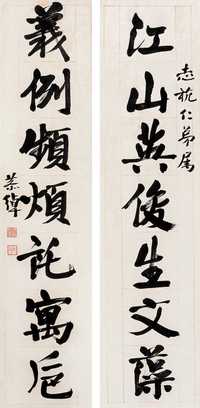 志杭仁弟属
江山英俊生文藻
義例頻煩託寓卮
恭綽